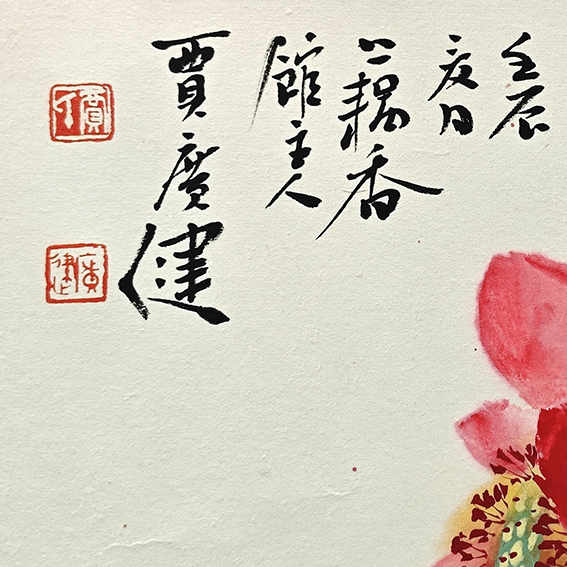 壬辰
夏日
藕香
館主人
賈廣健
賈
廣健